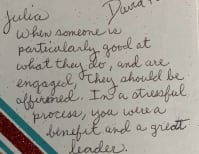 Julia
David
When someone is
particularly good at
what they do, and are
engaged, they should be
affirmed. In a stressful
process, you were a
benefit and a great
leader.